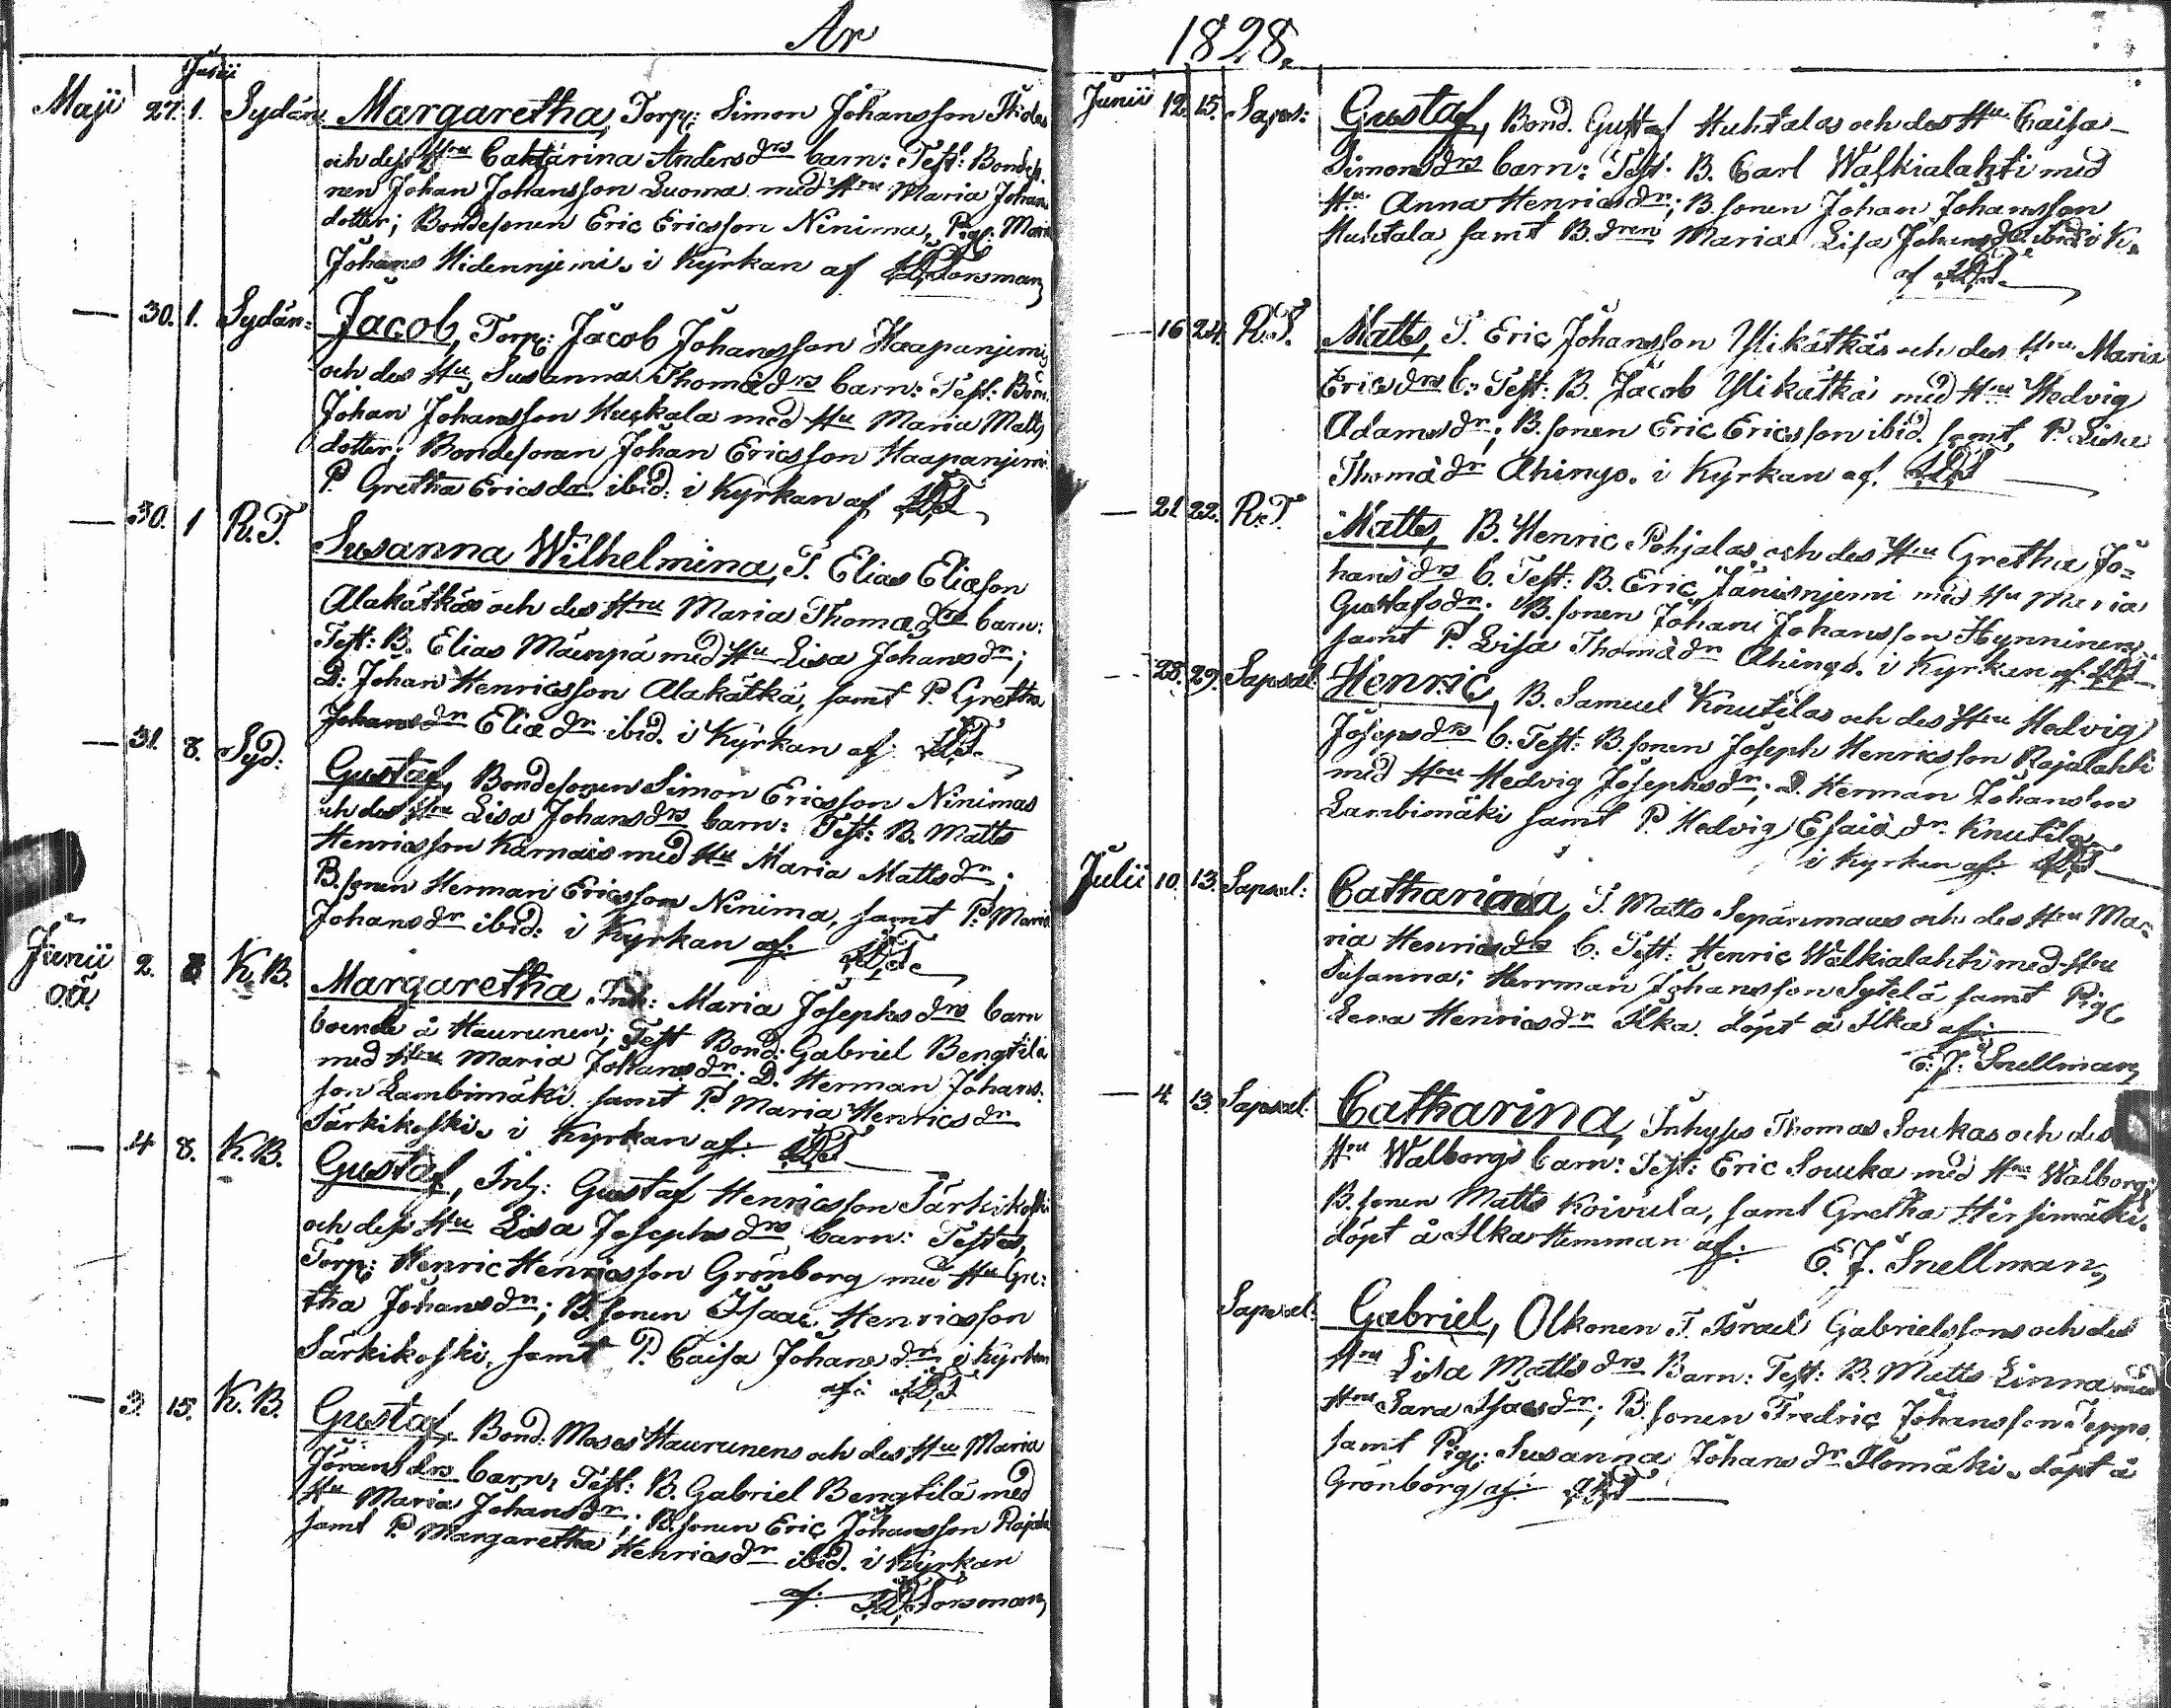 År
Junii
Maji 27. 1. Sydän: Margaretha, Torp: Simon Johansson
och dess Hru Catharina Anders drs barn: Test: Bondes.
nen Johan Johansson Luoma med Hru Maria Johans
dotter; Bondesonen Eric Ericsson Ninima, Pig: Maria
Johans Hidennjemi. i Kyrkan af Forsman
— 30. 1. Sydän: Jacob, Torp: Jacob Johansson Haapanjemi
och des Hu Susanna Thomæ drs barn: Test: Bon.
Johan Johansson Kuckala med Hu Maria Matts
dotter; Bondesonen Johan Ericsson Haapanjemi
P. Gretha Erics dr. ibid: i Kyrkan af
— 30. 1 R.T. Susanna Wilhelmina, T. Elias Eliæson
Alakätkäs och des Hru Maria Thomæ drs barn:
Test: B. Elias Mäenpä med Hu Lisa Johans dr;
D: Johan Henricsson Alakätkä, samt P. Gretha
Johans dr Eliæ dr ibid. i Kyrkan af
— 31. 8. Syd: Gustaf, Bondesonen Simon Ericsson Ninimas
och des Hru Lisa Johans drs barn: Test: B. Matts
Henricsson Karnais med Hu Maria Matts dr;
B. sonen Herman Ericsson Ninima, samt P. Maria
Johans dr ibid: i Kyrkan af:
Junii 2. 8 K.B. Margaretha Inh: Maria Josephs drs barn
oä. boende å Haurunen; Test Bond: Gabriel Bengtilä
med Hru Maria Johans dr. D. Herman Johans-
son Lambimäki samt P. Maria Henrics dr
Särkikoski. i Kyrkan af:
— 4 8. K.B. Gustaf, Inh: Gustaf Henricsson Särkikoski
och dess Hu Lisa Josephs drs barn: Testes,
Torp: Henric Henricsson Grönborg med Hu Gre:
tha Johans dr; B. sonen Isaac Henricsson
Särkikoski, samt P. Caisa Johans dr i Kyrkan
af:
— 3. 15. K.B. Gustaf, Bond: Moses Haurunens och des Hu Maria
Jörans drs barn, Test: B. Gabriel Bengtilä med
Hu Maria Johans dr; B. sonen Eric Johansson Rajala
samt P. Margaretha Henrics dr ibid. i Kyrkan
af: Forsman
1828.
Junii 12. 15. Sapsal: Gustaf, Bond. Gustaf Huhtalas och des Hu Caisa
Simons drs barn: Test: B. Carl Walkialahti med
Hu Anna Henrics dr; B. sonen Johan Johansson
Huhtala samt B. dren Maria Lisa Johans dr ibid i K.
af
— 16 24. R.T. Matts, T. Eric Johansson Ylikätkäs och des Hru Maria
Erics drs b: Test: B. Jacob Ylikätkä med Hru Hedvig
Adams dr; B. sonen Eric Ericsson ibid. samt P. Lisa
Thomæ dr Ahingo. i Kyrkan af.
— 21 22. R.T. Matts, B. Henric Pohjalas och des Hru Gretha Jo-
hans drs b. Test: B. Eric Jänisnjemi med Hu Maria
Gustafs dr. B. sonen Johan Johansson Hynninen
samt P. Lisa Thomæ dr Ahingo. i Kyrkan af
— 28. 29. Sapsal: Henric, B. Samuel Knutilas och des Hru Hedvig
Joseps drs b: Test: B. sonen Joseph Henricsson Rajalahti
med Hru Hedvig Josephs dr; D. Herman Johansson
Lambimäki samt P. Hedvig Esaiæ dr. Knutila
i Kyrkan af:
Julii 10. 13. Sapsal: Catharina, T. Matts Sepänmaas och des Hru Ma-
ria Henrics drs b. Test: Henric Walkialahti med Hru
Susanna; Herrman Johansson Sytelä samt Pig:
Lena Henrics dr Ilka. döpt å Ilka af:
E. J. Snellman
— 4. 13. Sapsal: Catharina, Inhyses Thomas Soukas och des
Hru Walborgs barn: Test: Eric Souka med Hru Walborg;
B. sonen Matts Koivula, samt Gretha Hirsimäki.
döpt å Ilka Hemman af: E. J. Snellman
Sapsal: Gabriel, Olkonen T. Israel Gabrielssons och des
Hru Lisa Matts drs Barn: Test: B. Matts Linna med
Hru Sara Isacs dr; B. sonen Fredric Johansson Teppo.
samt Pig: Susanna Johans dr Ilomäki. döpt å
Grönborg af: